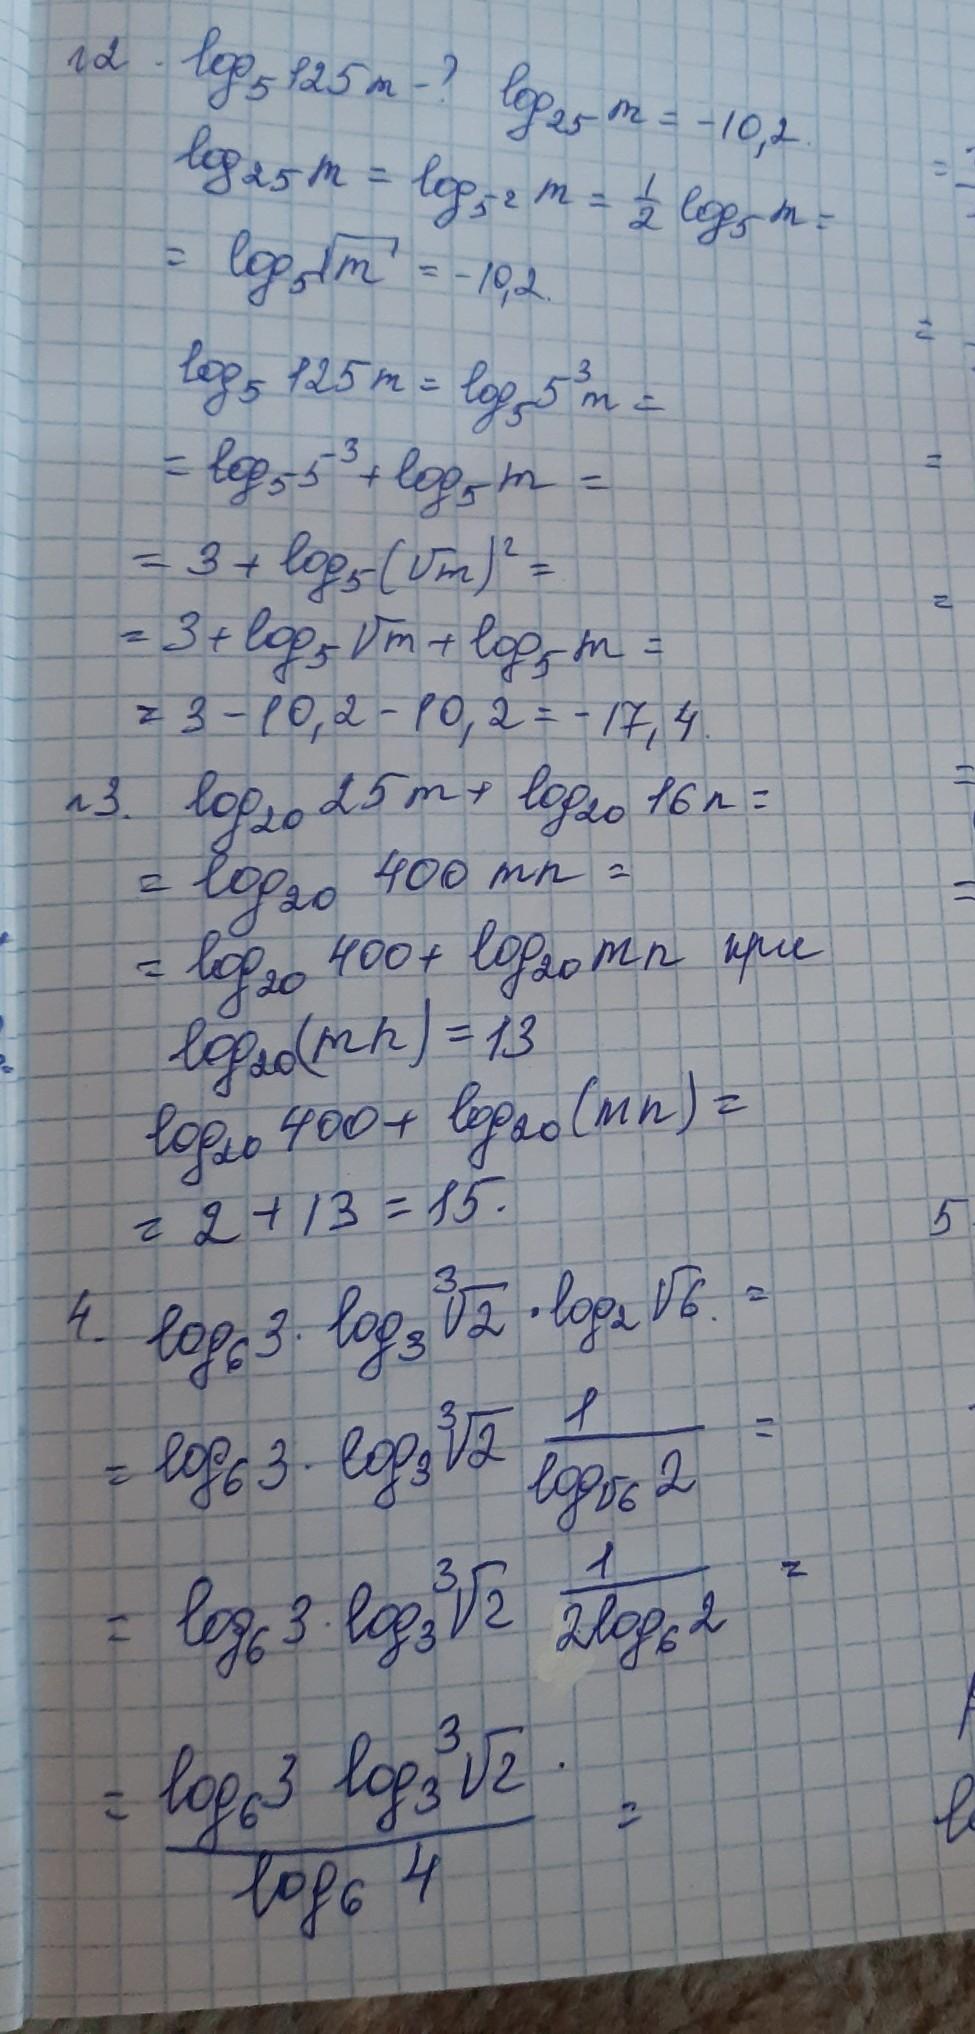 №2. log₅ 125m - ? log₂₅ m = -10,2.
log₂₅ m = log₅² m = 1/2 log₅ m =
= log₅ √m = -10,2.
log₅ 125m = log₅ 5³m =
= log₅ 5³ + log₅ m =
= 3 + log₅ (√m)² =
= 3 + log₅ √m + log₅ m =
= 3 - 10,2 - 10,2 = -17,4.
№3. log₂₀ 25m + log₂₀ 16n =
= log₂₀ 400 mn =
= log₂₀ 400 + log₂₀ mn при
log₂₀(mn) = 13
log₂₀ 400 + log₂₀(mn) =
= 2 + 13 = 15.
4. log₆ 3 · log₃ ∛2 · log₂ √6. =
= log₆ 3 · log₃ ∛2 1/(log_√6 2) =
= log₆ 3 · log₃ ∛2 1/(2log₆ 2) =
= (log₆ 3 log₃ ∛2 ·)/(log₆ 4) =